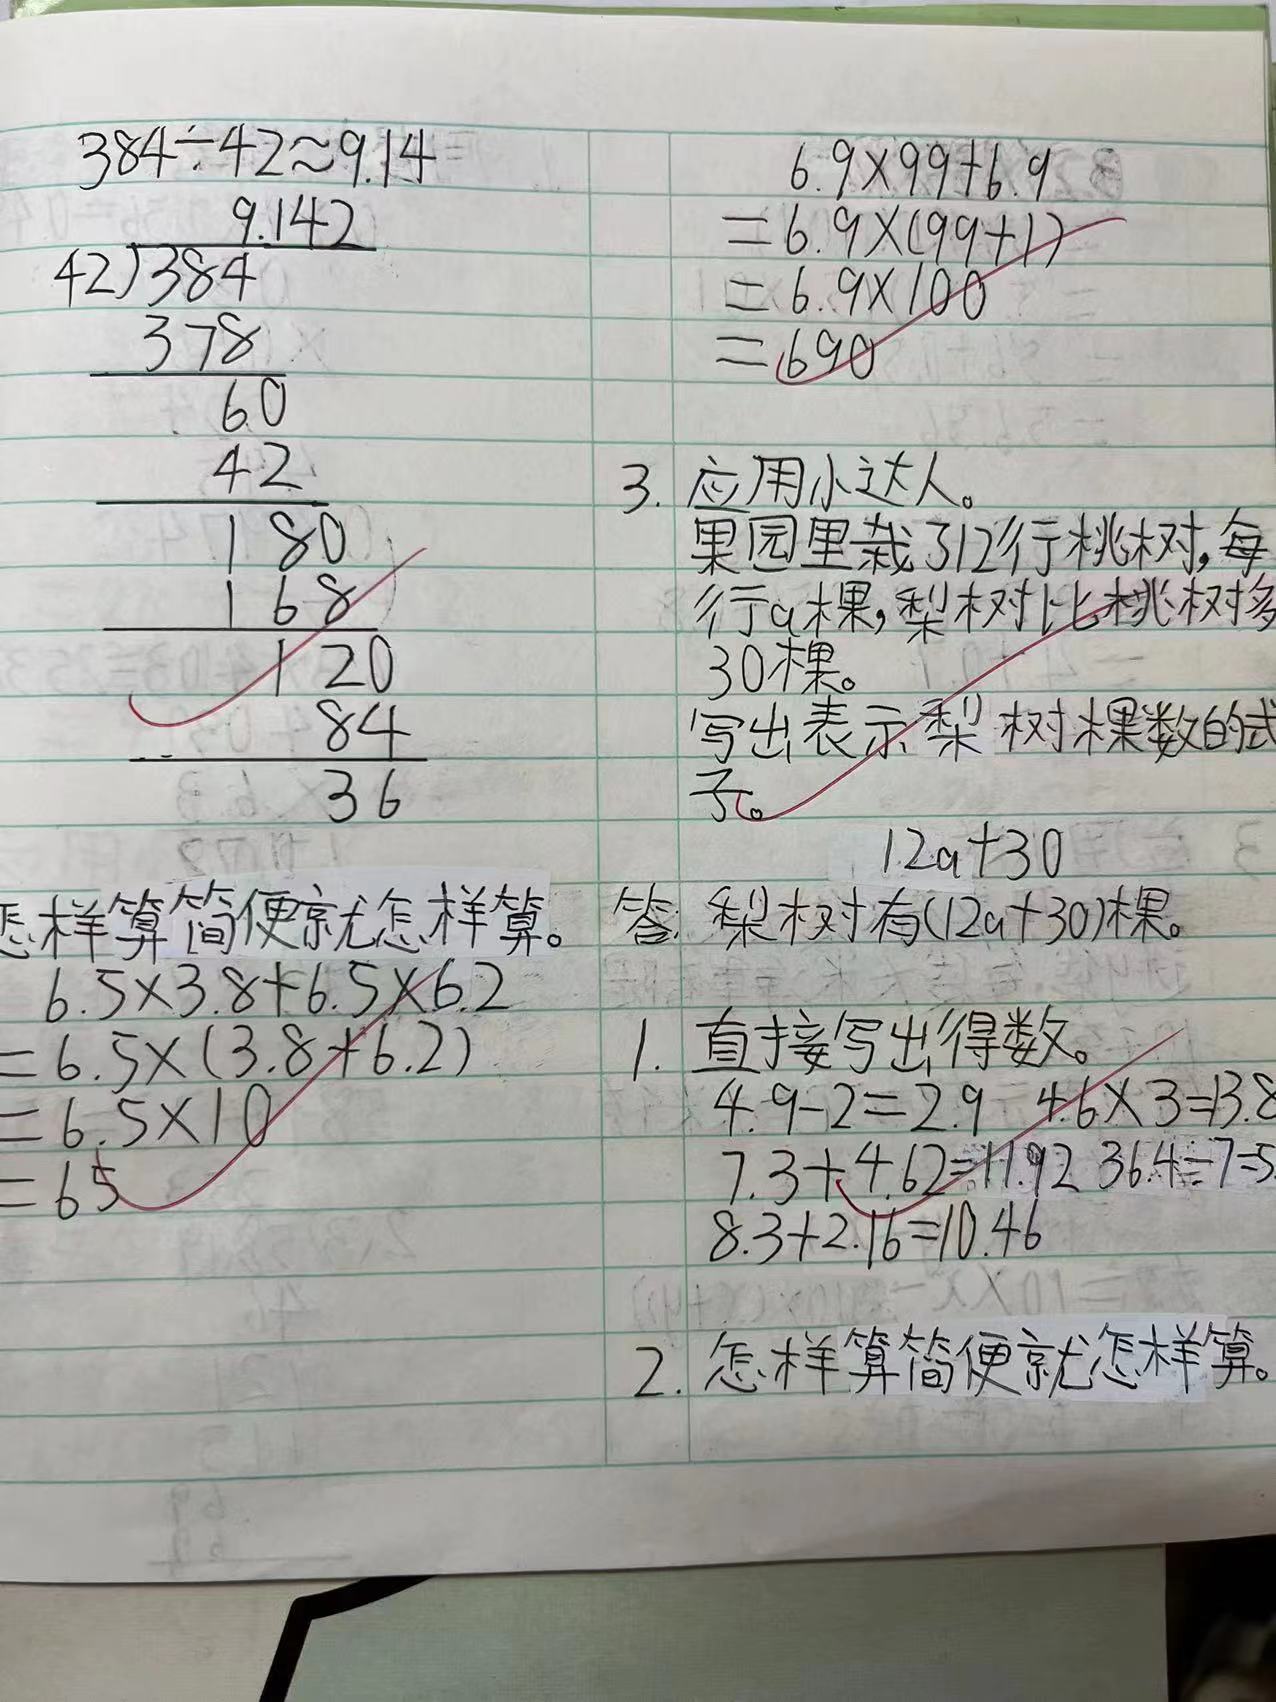 384÷42≈9.14
9.142
42)384
378
60
42
180
168
120
84
36
怎样算简便就怎样算。
6.5×3.8+6.5×6.2
=6.5×(3.8+6.2)
=6.5×10
=65
6.9×99+6.9
=6.9×(99+1)
=6.9×100
=690
3. 应用小达人。
果园里栽了12行桃树,每
行a棵,梨树比桃树多
30棵。
写出表示梨树棵数的式
子。
12a+30
答: 梨树有(12a+30)棵。
1. 直接写出得数。
4.9-2=2.9 4.6×3=13.8
7.3+4.62=11.92 36.4÷7=5.
8.3+2.16=10.46
2. 怎样算简便就怎样算。